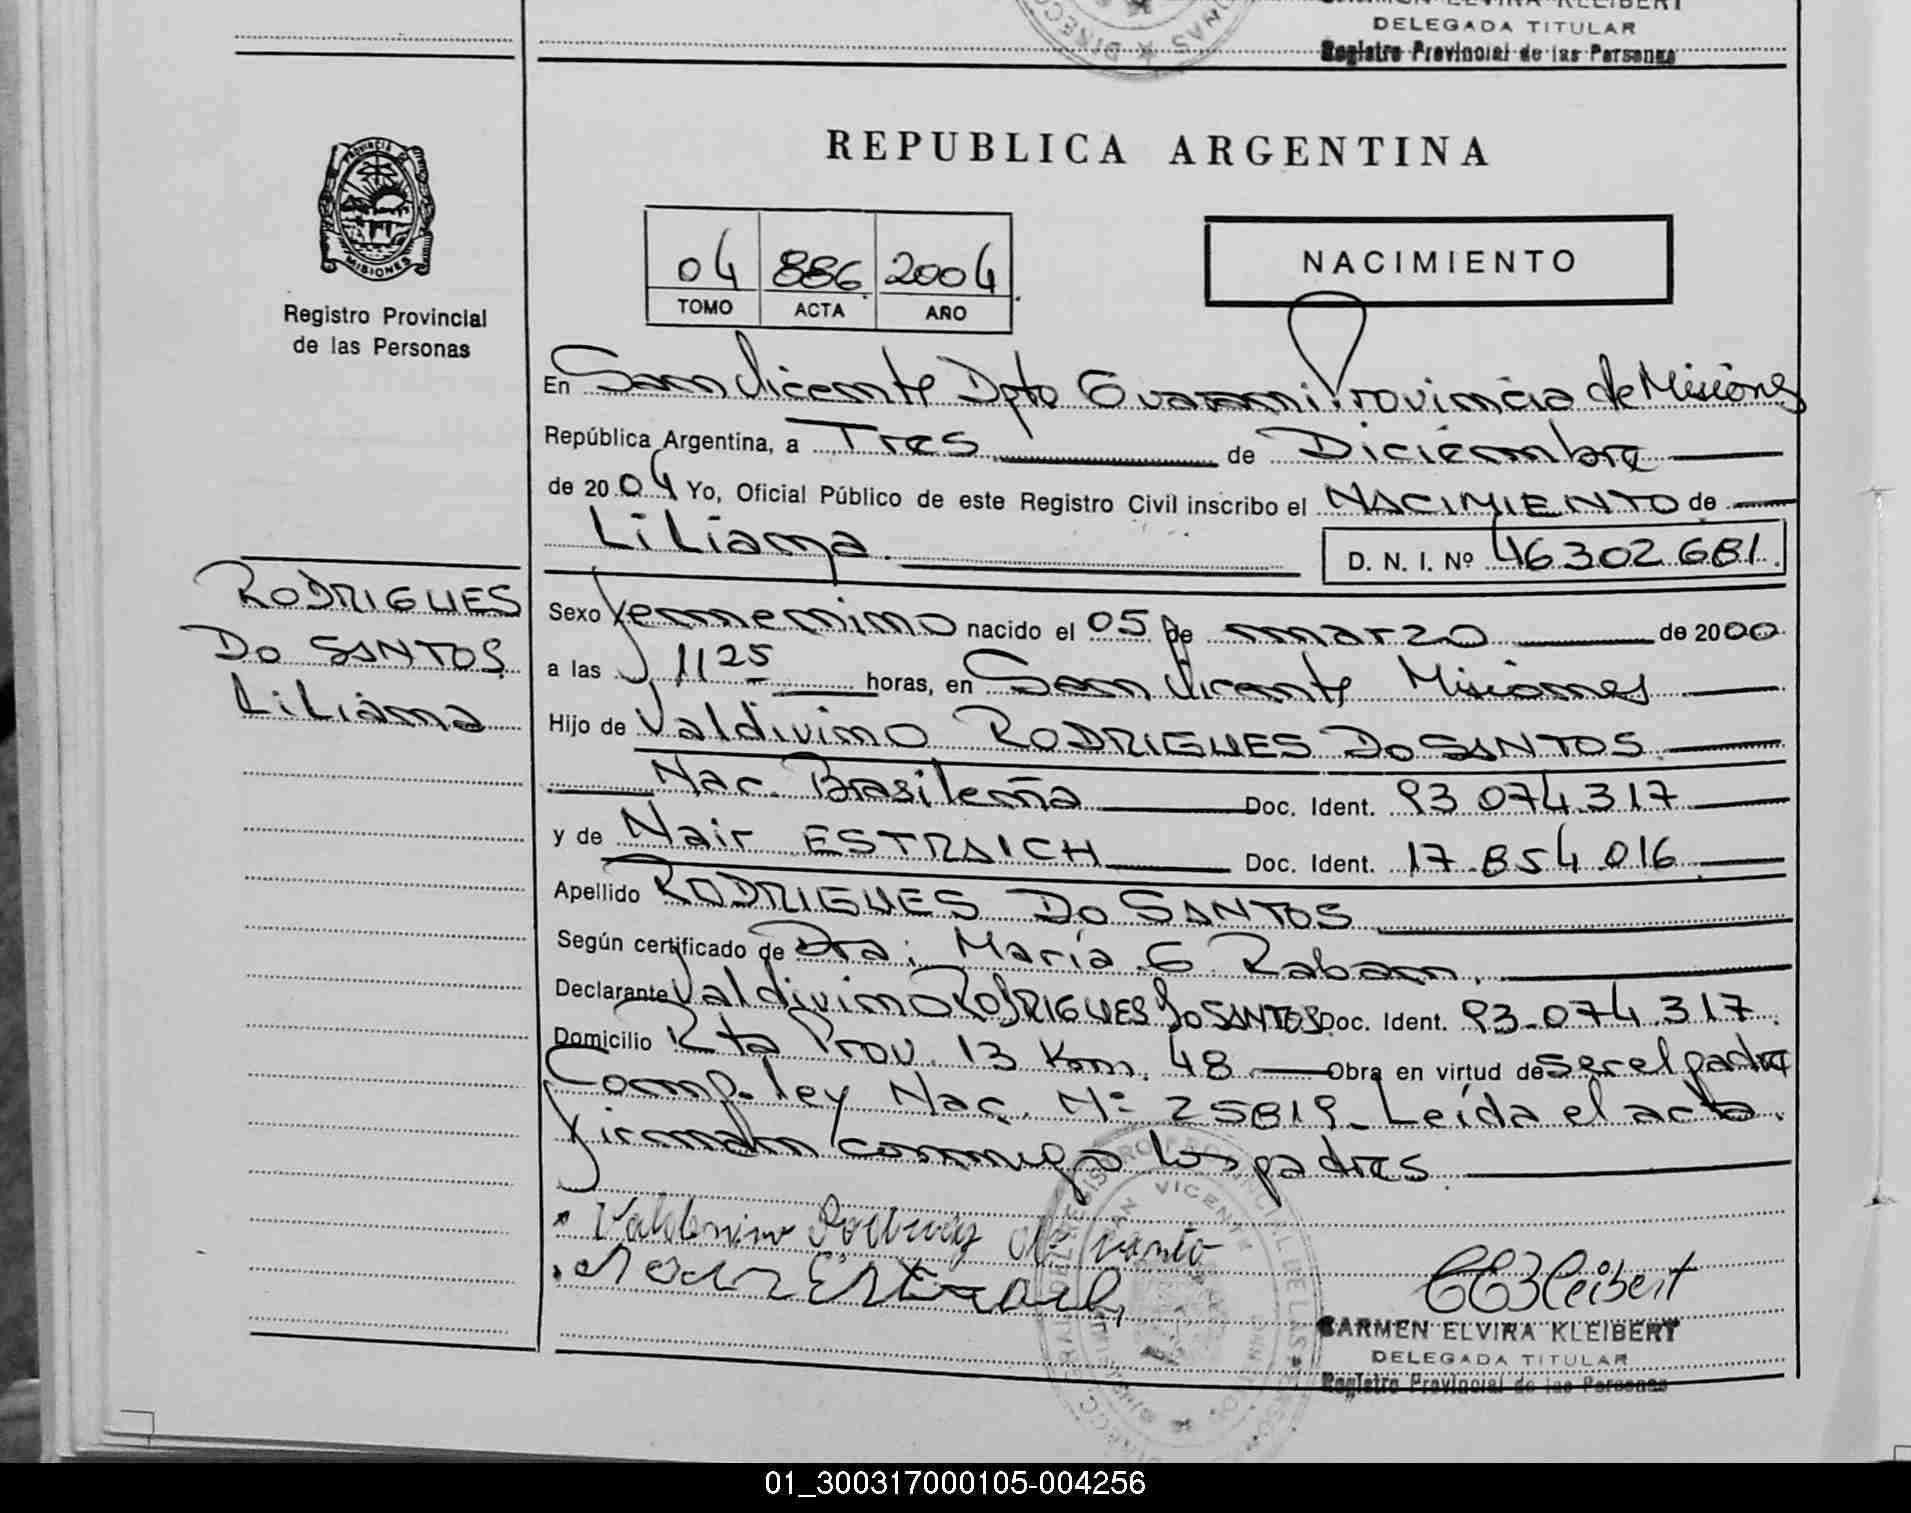 CARMEN ELVIRA KLEIBERT
DELEGADA TITULAR
Registro Provincial de las Personas
PROVINCIA DE
MISIONES
Registro Provincial
de las Personas
REPUBLICA ARGENTINA
04 886 2004
TOMO ACTA AÑO
NACIMIENTO
En San Vicente Dpto Guarani Provincia de Misiones
República Argentina, a Tres de Diciembre
de 2004 Yo, Oficial Público de este Registro Civil inscribo el NACIMIENTO de
Liliana D. N. I. Nº 46302681
RODRIGUES
Do SANTOS
Liliana
Sexo femenino nacido el 05 de marzo de 2000
a las 11 25 horas, en San Vicente Misiones
Hijo de Valdivino RODRIGUES Do SANTOS
Nac. Brasileña Doc. Ident. 93 074.317
y de Nair ESTRAICH Doc. Ident. 17.854.016
Apellido RODRIGUES Do SANTOS
Según certificado de Dra: María G Raban
Declarante Valdivino RODRIGUES Do SANTOS Doc. Ident. 93.074.317.
Domicilio Rta Prov. 13 Km. 48 Obra en virtud de ser el padre
Comp. ley Nac. Nº 25819_ Leída el acta.
firman conmigo los padres
CARMEN ELVIRA KLEIBERT
DELEGADA TITULAR
Registro Provincial de las Personas
01_300317000105-004256